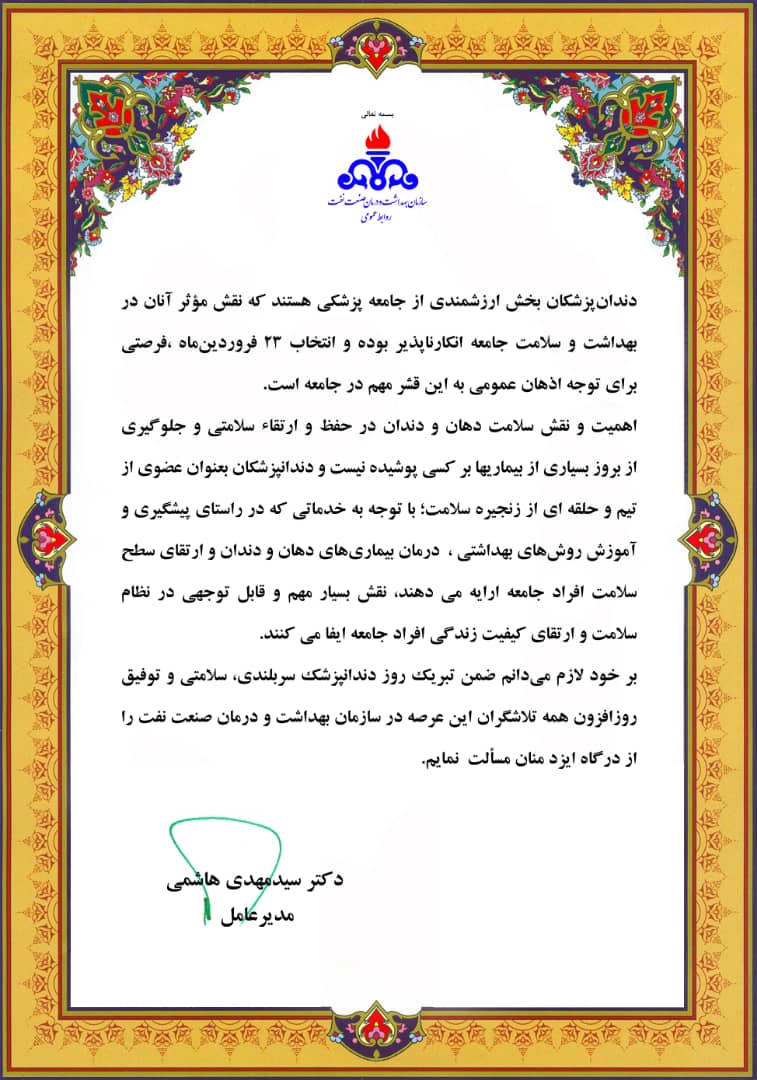 بسمه تعالی
سازمان بهداشت و درمان صنعت نفت
روابط عمومی
دندان‌پزشکان بخش ارزشمندی از جامعه پزشکی هستند که نقش مؤثر آنان در
بهداشت و سلامت جامعه انکارناپذیر بوده و انتخاب ۲۳ فروردین‌ماه ،فرصتی
برای توجه اذهان عمومی به این قشر مهم در جامعه است.
اهمیت و نقش سلامت دهان و دندان در حفظ و ارتقاء سلامتی و جلوگیری
از بروز بسیاری از بیماریها بر کسی پوشیده نیست و دندانپزشکان بعنوان عضوی از
تیم و حلقه ای از زنجیره سلامت؛ با توجه به خدماتی که در راستای پیشگیری و
آموزش روش‌های بهداشتی ، درمان بیماری‌های دهان و دندان و ارتقای سطح
سلامت افراد جامعه ارایه می دهند، نقش بسیار مهم و قابل توجهی در نظام
سلامت و ارتقای کیفیت زندگی افراد جامعه ایفا می کنند.
بر خود لازم می‌دانم ضمن تبریک روز دندانپزشک سربلندی، سلامتی و توفیق
روزافزون همه تلاشگران این عرصه در سازمان بهداشت و درمان صنعت نفت را
از درگاه ایزد منان مسألت نمایم.
دکتر سیدمهدی هاشمی
مدیرعامل